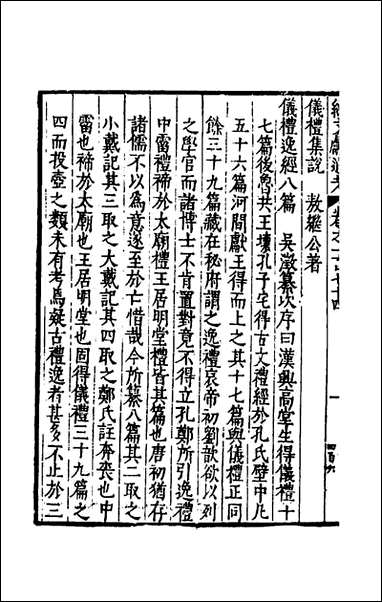 儀禮集說　敖繼公著
儀禮逸經八篇　吳澂纂次序曰漢興高堂生得儀禮十
七篇後魯共王壞孔子宅得古文禮經於孔氏壁中凡
五十六篇河間獻王得而上之其十七篇與儀禮正同
餘三十九篇藏在秘府謂之逸禮哀帝初劉歆欲以列
之學官而諸博士不肯置對竟不得立孔鄭所引逸禮
中雷禮禘於太廟禮王居明堂禮皆其篇也唐初猶存
諸儒不以爲意遂至於亡惜哉今所纂八篇其二取之
小戴記其三取之大戴記其四取之鄭氏註奔喪也中
雷也禘於太廟也王居明堂也固得儀禮三十九篇之
四而投壺之類未有考焉疑古禮逸者甚多不止於三